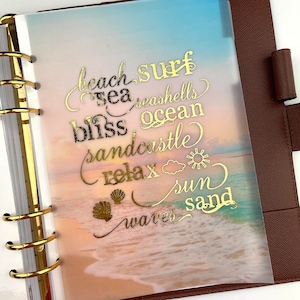 beach surf
sea seashells
bliss ocean
sandcastle
relax
sun
sand
waves